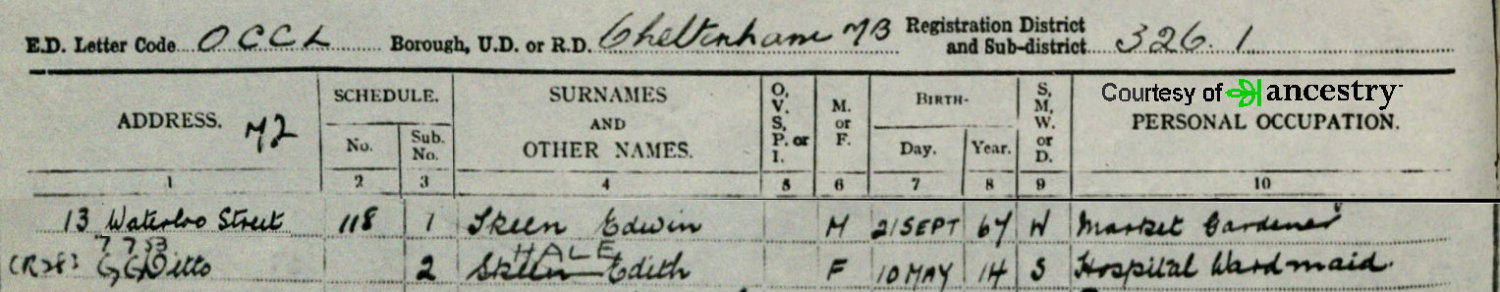 E.D. Letter Code OCCL Borough, U.D. or R.D. Cheltenham MB Registration District and Sub-district 326.1
Courtesy of ancestry
ADDRESS. SCHEDULE. SURNAMES AND OTHER NAMES. O, V, S, P. or I. M. or F. BIRTH- S, M, W. or D. PERSONAL OCCUPATION.
No. Sub. No. Day. Year.
1 2 3 4 5 6 7 8 9 10
13 Waterloo Street 118 1 Skeen Edwin M 21 SEPT 67 W Market Gardener
7 7 53 HALE
Ditto 2 Skeen Edith F 10 MAY 14 S Hospital Wardmaid.